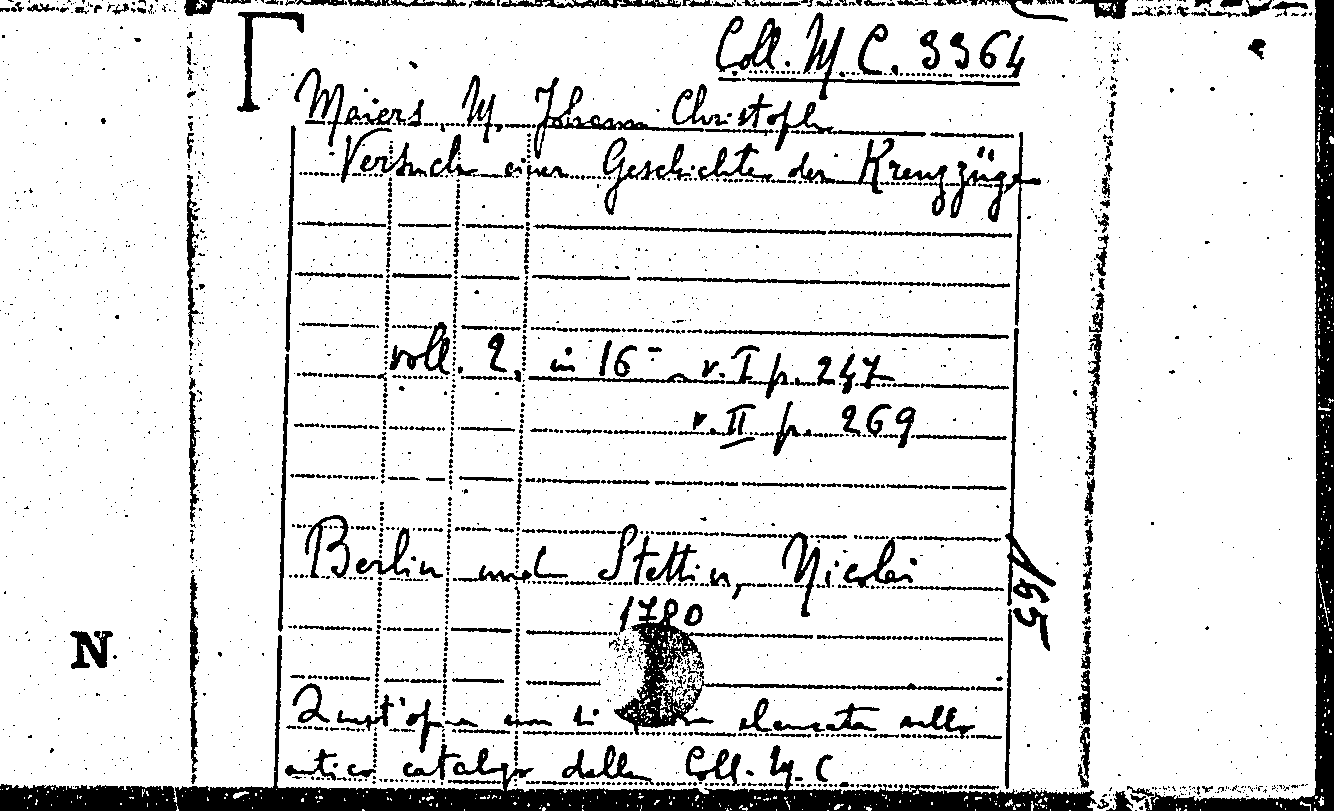 Coll. M. C. 3364
Maiers, M. Johann Christoph
Versuch einer Geschichte der Kreuzzüge
voll. 2. in 16° - v. I p. 247
v. II p. 269
165
Berlin und Stettin, Nicolai
1780
N
Quest'opera non si elencata nello
antico catalogo della Coll. M. C.